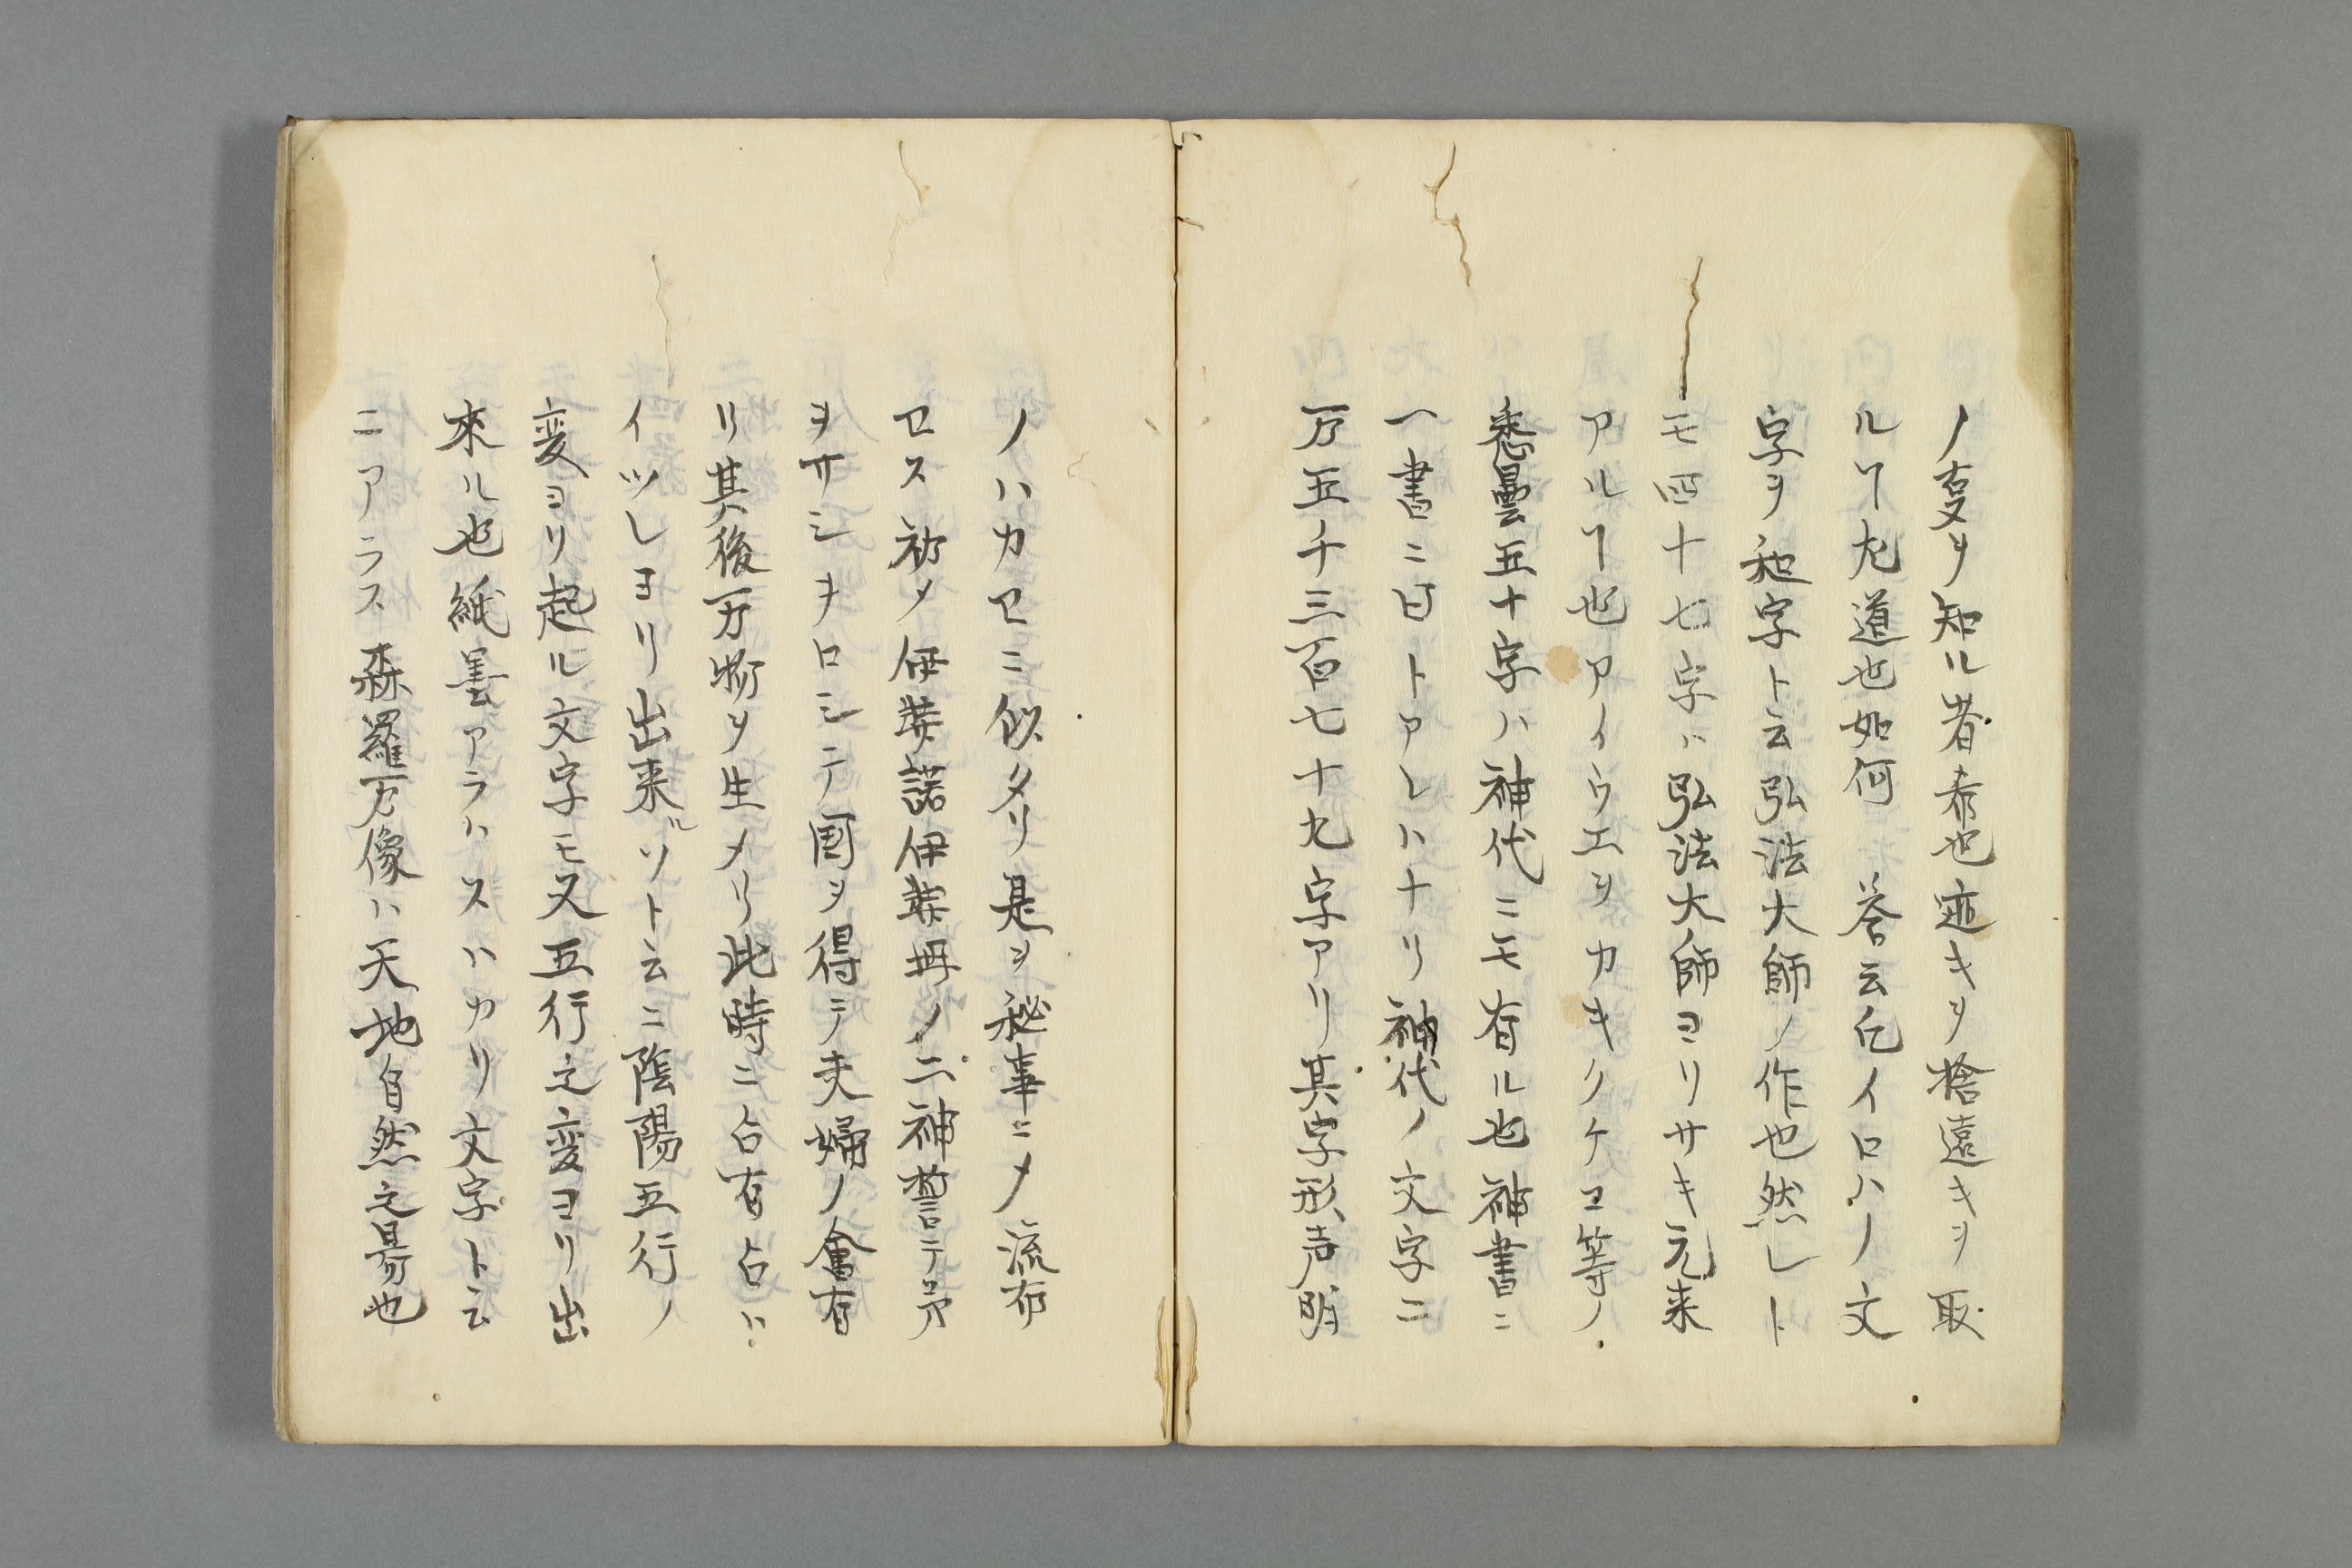 ノ変ヲ知ル者希也近キヲ捨遠キヲ取
ルヿ尤道也如何 答云凡イロハノ文
字ヲ和字ト云弘法大師ノ作也然レト
モ四十七字ハ弘法大師ヨリサキ元来
アルヿ也アイウエヲカキクケコ等ノ
悉曇五十字ハ神代ニモ有ル也神書ニ
一書ニ曰トアレハナリ神代ノ文字ニ
万五千三百七十九字アリ其字形声明
ノハカセニ似タリ是ヲ秘事ニメ流布
セス初メ伊弉諾伊弉冊ノ二神誓テ矛
ヲサシヲロシテ国ヲ得テ夫婦ノ會有
リ其後万物ヲ生メリ此時ニ占有占ハ
イツレヨリ出来ルソト云ニ陰陽五行ノ
変ヨリ起ル文字モ又五行之変ヨリ出
来ル也紙墨アラハスハカリ文字ト云
ニアラス森羅万像ハ天地自然之尋也